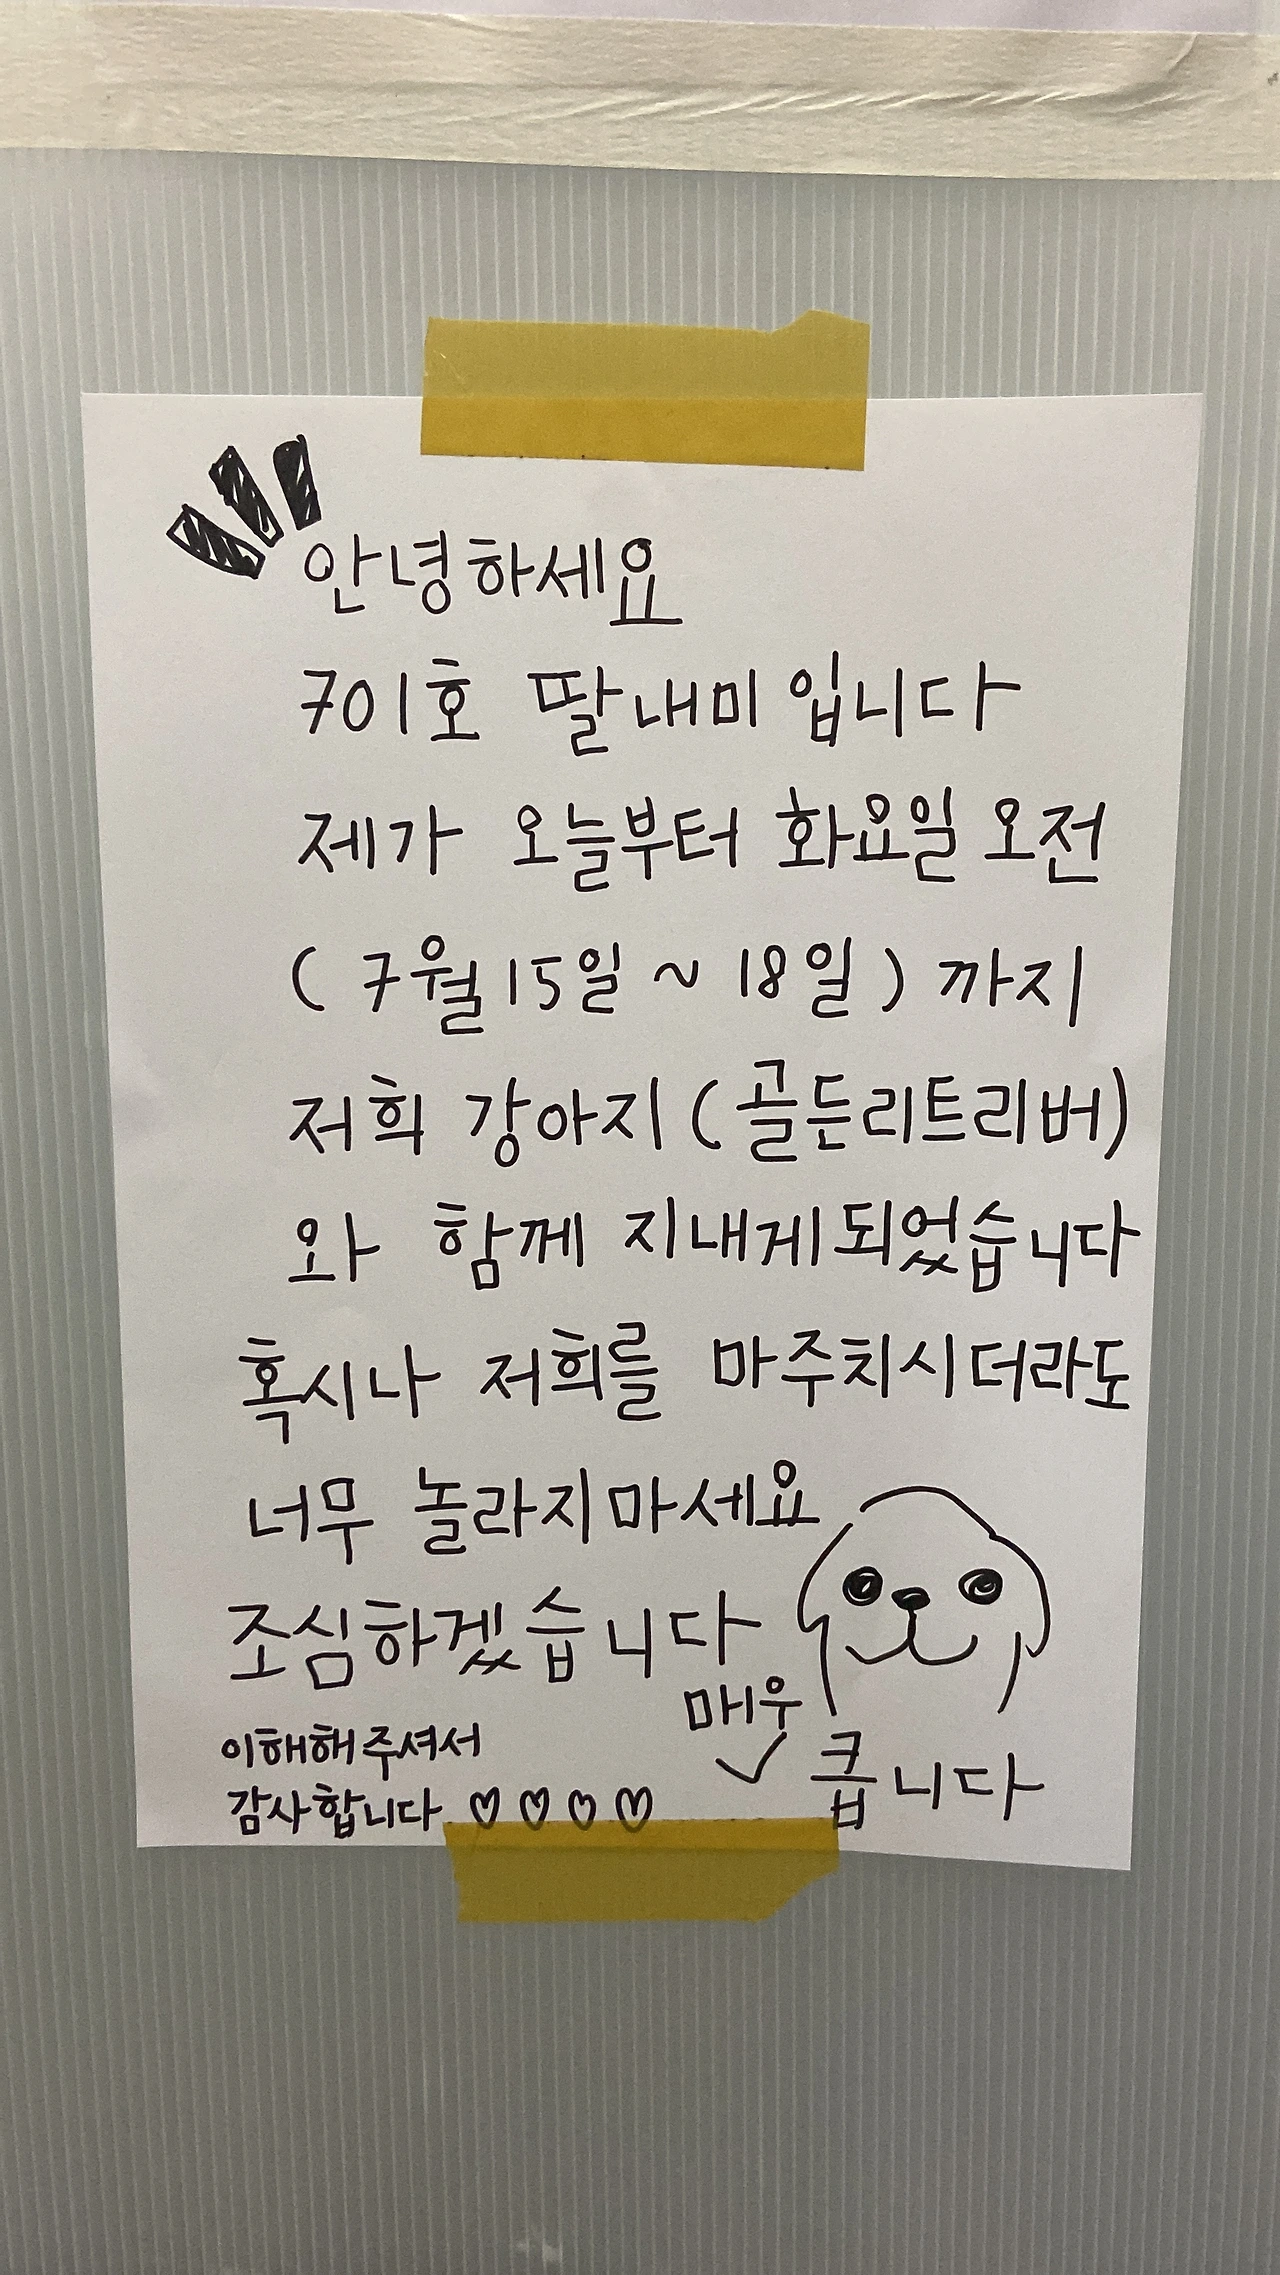 안녕하세요
701호 딸내미입니다
제가 오늘부터 화요일 오전
(7월 15일 ~ 18일) 까지
저희 강아지 (골든리트리버)
와 함께 지내게 되었습니다
혹시나 저희를 마주치시더라도
너무 놀라지마세요
조심하겠습니다
매우
큽니다
이해해주셔서
감사합니다 ♡ ♡ ♡ ♡